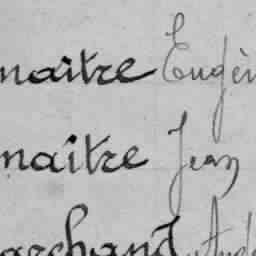 naître Eugèn
naître Jean
archand And